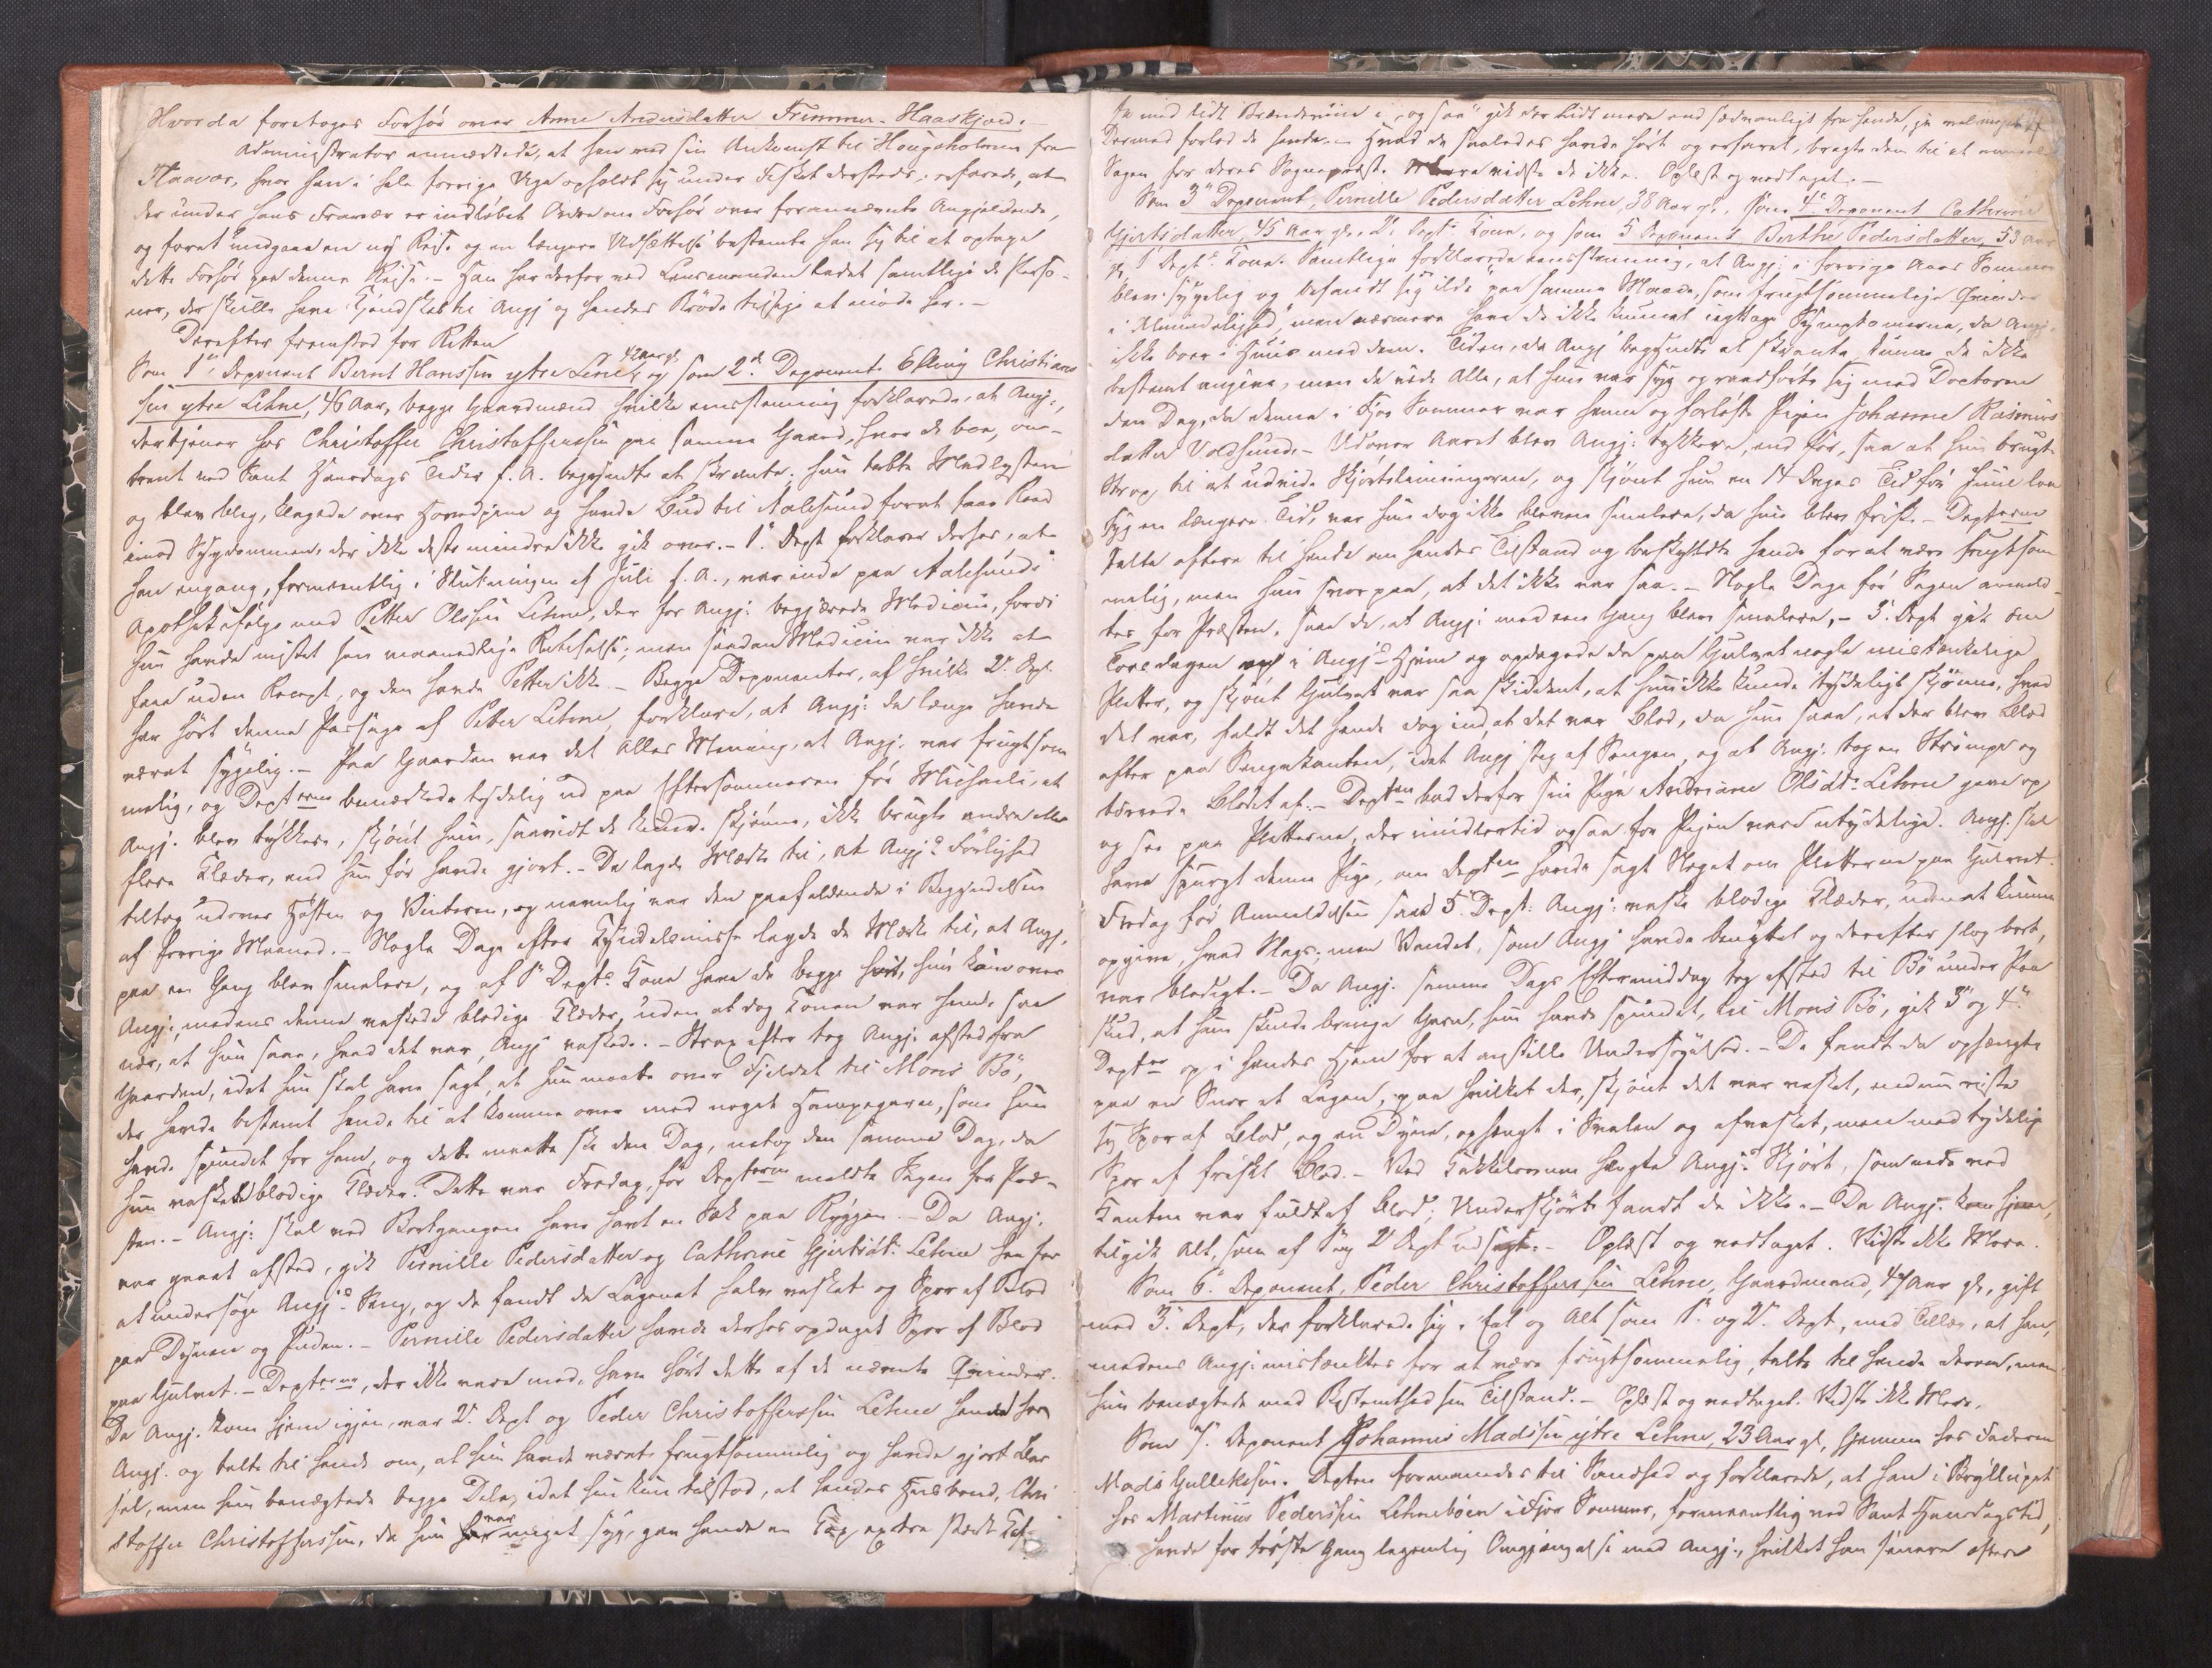 Hvorda foretoges Forhør over Anne Andersdatter Trimmer-Haaskjold.
Administrator anmærkede, at han ved sin Ankomst til Hougsholmen fra
Haavær, hvor han i hele forrige Uge opholdt sig under Fisket dersteds, erfarede, at
der under hans Fravær er indløbet Ordre om Forhør over forannævnte Angjældende,
og forat undgaae en ny Reise og en længere Udsættelse bestemte han sig til at optage
dette Forhør paa denne Reise. - Han har derfor ved Lensmanden ladet samtlige de Perso-
ner, der skulle have Kjendskab til Angj og hendes Brøde tilsige at møde her. -
Derefter fremstod for Retten
Som 1ste Deponent Bernt Hanssen ytre Lehne, 42 Aar gl. og som 2d. Deponent Elling Christians
sen ytre Lehne, 46 Aar, begge Gaardmænd hvilke eensstemmig forklarede, at Angj:,
der tjener hos Christoffer Christofferssen paa samme Gaard, hvor de boe, om-
trent ved Sant Hansdags Tider f. A. begyndte at skrante; hun tabte Madlysten
og blev bleg, klagede over Hovedpine og sendte Bud til Aalesund forat faae Raad
imod Sygdommen, der ikke desto mindre ikke gik over. - 1. Dept forklarer derhos, at
han engang, formeentlig i Slutningen af Juli f. A., var inde paa Aalesunds
Apothek ifølge med Petter Olssen Lehne, der for Angj: begjærede Medicin, fordi
hun havde mistet sin maanedlige Renselse; men saadan Medicin var ikke at
faae uden Recept, og den havde Petter ikke. - Begge Deponenter, af hvilke 2. Dept
har hørt denne Passage af Petter Lehne, forklare, at Angj: da længe havde
været sygelig. - Paa Gaarden var det Alles Mening, at Angj. var frugtsom
melig, og Depterne bemærkede tydelig ud paa Eftersommeren før Michaeli, at
Angj. blev tykkere, skjønt hun, saavidt de kunde skjønne, ikke brugte andre eller
flere Klæder, end hun før havde gjort. - De lagde Mærke til, at Angjs Førlighed
tiltog udover Høsten og Vinteren, og navnlig var den paafaldende i Begyndelsen
af forrige Maaned. - Nogle Dage efter Kyndelsmisse lagde de Mærke til, at Angj.
paa en Gang blev smalere, og af 1 Depts Kone have de begge hørt, hun kom over
Angj:, medens denne vaskede blodige Klæder, uden at dog Konen var hende saa
nær, at hun saae, hvad det var, Angj vaskede. - Strax efter tog Angj: afsted fra
Gaarden, idet hun skal have sagt, at hun maatte over Fjeldet til Mons Bø,
der havde bestemt hende til at komme over med noget Hampegarn, som hun
havde spundet for ham, og dette maatte ske den Dag, netop den samme Dag, da
hun vaskede blodige Klæder. Dette var Fredag, før Depterne meldte Sagen for Præ-
sten. - Angj: skal ved Bortgangen have havt en Sæk paa Ryggen. - Da Angj.
var gaaet afsted, gik Pernille Pedersdatter og Cathrine Gjertsdt. Lehne hen for
at undersøge Angjs Seng, og de fandt da Lagenet halv vasket og Spor af Blod
paa Dynen og Puden. - Pernille Pedersdatter havde derhos opdaget Spor af Blod
paa Gulvet. - Depterne, der ikke vare med, have hørt dette af de nævnte Qvinder.
Da Angj. kom hjem igjen, var 2. Dept og Peder Christofferssen Lehne henne hos
Angj. og talte til hende om, at hun havde været frugtsommelig og havde gjort Bar
sel, men hun benægtede begge Dele, idet hun kun tilstod, at hendes Husbond, Chri
stoffer Christofferssen, da hun var meget syg, gav hende en Kop extra stærk Kaf-
fe med lidt Brændeviin i, og saa gik der lidt mere end sædvanligt fra hende, ja vel meget.
Dermed forlod de hende. - Hvad de saaledes havde hørt og erfaret, bragte dem til at anmelde
Sagen for deres Sognepræst. Mere vidste de ikke. Oplæst og vedtaget. -
Som 3die Deponent, Pernille Pedersdatter Lehne, 38 Aar gl., som 4de Deponent Cathrine
Gjertsdatter, 45 Aar gl., 2. Depts Kone, og som 5 Deponent Berthe Pedersdatter, 53 Aar
gl, 1 Depts Kone. Samtlige forklarede eensstemmig, at Angj: i forrige Aars Sommer
blev sygelig og befandt sig ilde paa samme Maade, som frugtsommelige Qvinder
i Almindelighed, men nærmere have de ikke kunnet iagttage Symptomerne, da Angj.
ikke boer i Huus med dem. Tiden, da Angj begyndte at skrante, kunne de ikke
bestemt angive, men de vide Alle, at hun var syg og raadførte sig med Doctoren
den Dag, da denne i Fjor Sommer var henne og forløste Pigen Johanne Rasmus
datter Voldsund. - Udover Aaret blev Angj: tykkere, end før, saa at hun brugte
Strop til at udvide Skjørtelinningerne, og skjønt hun en 14 Dages Tid før Juul laa
syg en længere Tid, var hun dog ikke bleven smalere, da hun blev frisk. - Depterne
talte oftere til hende om hendes Tilstand og beskyldte hende for at være frugtsom
melig, men hun svor paa, at det ikke var saa. - Nogle Dage før Sagen anmeld
tes for Præsten, saae de, at Angj: med een Gang blev smalere, - 3. Dept gik om
Torsdagen i Angjs Hjem og opdagede da paa Gulvet nogle mistænkelige
Pletter, og skjønt Gulvet var saa skiddent, at hun ikke kunde tydeligt skjønne, hvad
det var, faldt det hende dog ind, at det var Blod, da hun saae, at der blev Blod
efter paa Sengekanten, idet Angj steg af Sengen, og at Angj. tog en Strømpe og
tørrede Blodet af. - Depten bad derfor sin Pige Andriane Olsdt. Lehne gaae op
og see paa Pletterne, der imidlertid ogsaa for Pigen vare utydelige. Angj. skal
have spurgt denne Pige, om Depten havde sagt Noget om Pletterne paa Gulvet.
Fredag før Anmeldelsen saae 5. Dept: Angj: vaske blodige Klæder, uden at kunne
opgive, hvad Slags; men Vandet, som Angj havde benyttet og derefter slog bort,
var blodigt. - Da Angj. samme Dags Eftermiddag tog afsted til Bø under Paa
skud, at hun skulde bringe Garn, hun havde spundet, til Mons Bø, gik 3die og 4de
Depter op i hendes Hjem for at anstille Undersøgelse. - De fandt da ophængt
paa en Snor et Lagen, paa hvilket der, skjønt det var vasket, endnu viste
sig Spor af Blod, og en Dyne, ophængt i Svalen og afvasket, men med tydelige
Spor af friskt Blod. - Ved Kakkelovnen hængte Angjs Skjørt, som nede ved
Kanten var fuldt af Blod; Underskjørte fandt de ikke. - Da Angj. kom hjem,
tilgik Alt, som af 2 Dept udsagt. - Oplæst og vedtaget. Vidste ikke Mere.
Som 6. Deponent, Peder Christofferssen Lehne, Gaardmand, 47 Aar gl., gift
med 3. Dept, der forklarede sig i Eet og Alt som 1. og 2. Dept, med Tillæg, at han,
medens Angj: mistænktes for at være frugtsommelig, talte til hende derom, men
hun benægtede med Bestemthed sin Tilstand. - Oplæst og vedtaget. Vidste ikke Mere.
Som 7. Deponent Johannes Madssen ytre Lehne, 23 Aar gl, hjemme hos Faderen
Mads Gulleksen. Depten formanedes til Sandhed og forklarede, at han i Brylluppet
hos Martinus Pederssen Lehnebøen i Fjor Sommer, formeentlig ved Sant Hansdagstid,
havde for første Gang legemlig Omgjængelse med Angj., hvilket han senere oftere